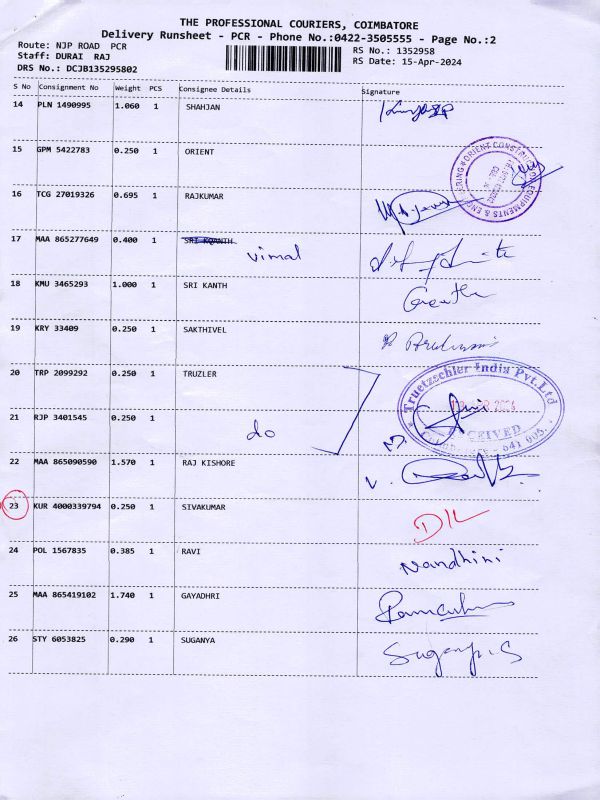 THE PROFESSIONAL COURIERS, COIMBATORE
Delivery Runsheet - PCR - Phone No.:0422-3505555 - Page No.:2
Route: NJP ROAD PCR
Staff: DURAI RAJ
DRS No.: DCJB135295802
RS No.: 1352958
RS Date: 15-Apr-2024
S No Consignment No Weight PCS Consignee Details Signature
14 PLN 1490995 1.060 1 SHAHJAN
15 GPM 5422783 0.250 1 ORIENT
16 TCG 27019326 0.695 1 RAJKUMAR
17 MAA 865277649 0.400 1 SRI KQANTH vimal
18 KMU 3465293 1.000 1 SRI KANTH
19 KRY 33409 0.250 1 SAKTHIVEL
20 TRP 2099292 0.250 1 TRUZLER
Truetzschler India Pvt.Ltd
21 RJP 3401545 0.250 1 do
22 MAA 865090590 1.570 1 RAJ KISHORE
23 KUR 4000339794 0.250 1 SIVAKUMAR
24 POL 1567835 0.385 1 RAVI Nandhini
25 MAA 865419102 1.740 1 GAYADHRI
26 STY 6053825 0.290 1 SUGANYA Suganya.S